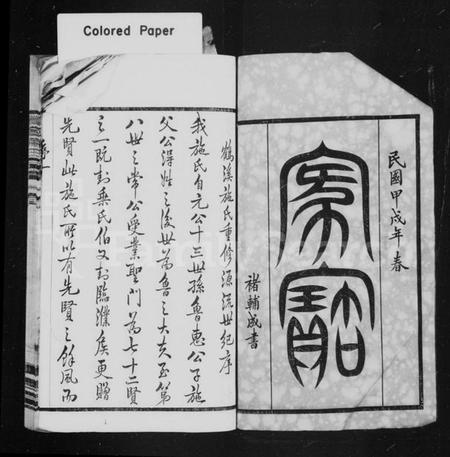 Colored Paper
民國甲戌年春
家寶
褚輔成書
鶴溪施氏重修源流世紀序
我施氏自元公十三世孫魯惠公子施
父公得姓之後世為魯之大夫至第
八世之常公受業聖門為七十二賢
之一既封乘氏伯又封臨濮侯更贈
先賢此施氏所以有先賢之餘風而
序